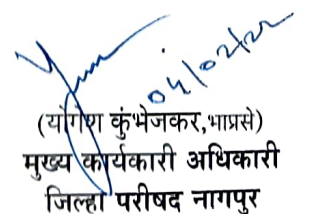 ०४/०२/२२
(योगेश कुंभेजकर,भाप्रसे)
मुख्य कार्यकारी अधिकारी
जिल्हा परीषद नागपुर